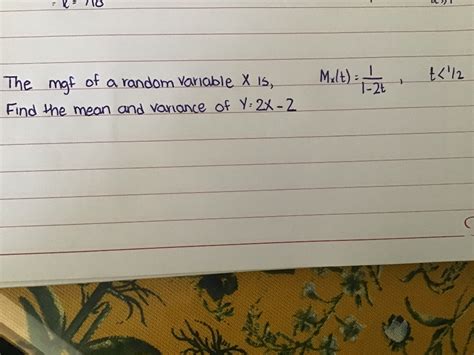 The mgf of a random variable X is, Mx(t) = 1/1-2t , t<1/2
Find the mean and variance of Y=2X-2